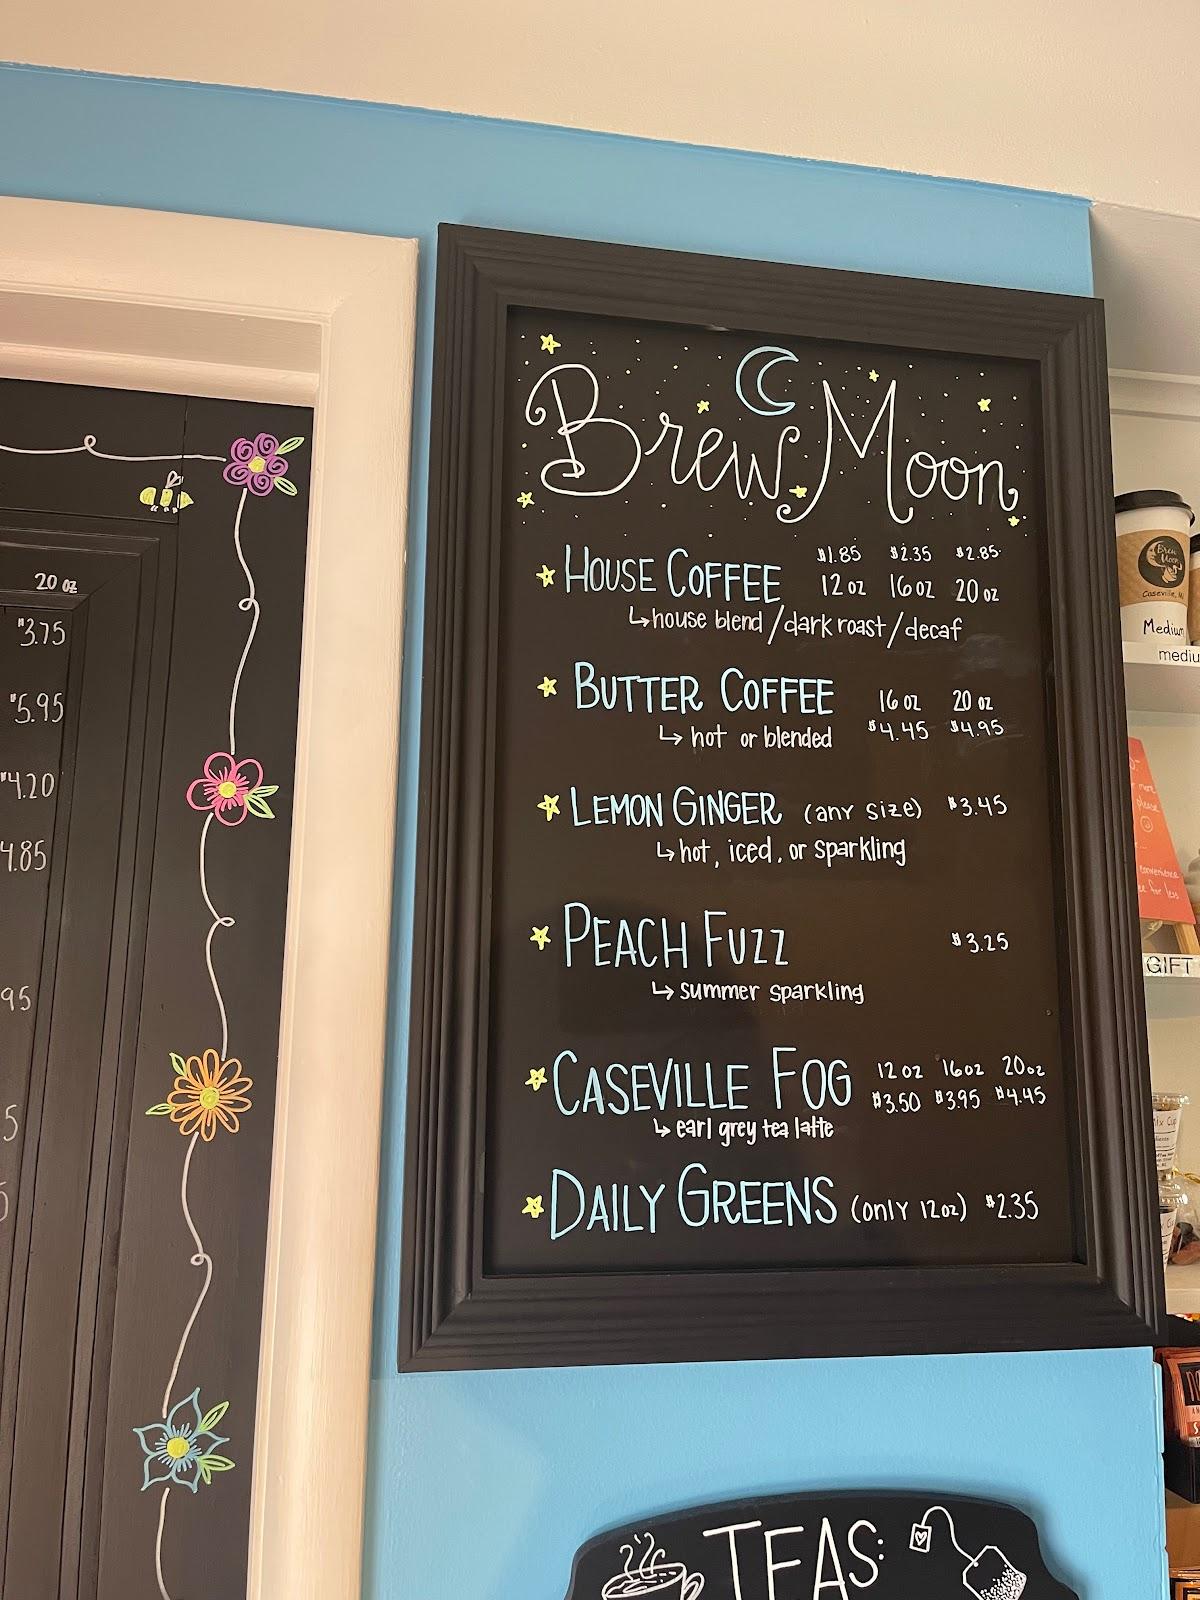 20 oz
$3.75
$5.95
$4.20
4.85
95
5
Brew Moon
$1.85 $2.35 $2.85
HOUSE COFFEE 12 oz 16 oz 20 oz
↳house blend/dark roast/decaf
BUTTER COFFEE 16 oz 20 oz
↳ hot or blended $4.45 $4.95
LEMON GINGER (any size) $3.45
↳hot, iced, or sparkling
PEACH FUZZ $3.25
↳ summer sparkling
CASEVILLE FOG 12 oz 16 oz 20 oz
$3.50 $3.95 $4.45
↳ earl grey tea latte
DAILY GREENS (only 12oz) $2.35
TEAS:
Brew
Moon
Caseville,
Medium
mediu
please
convenience
for less
GIFT